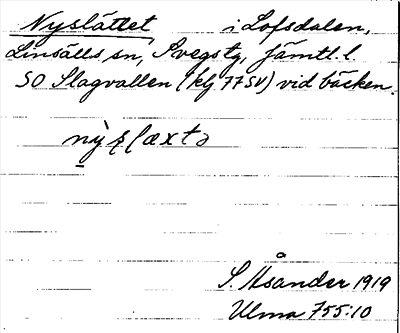 Nyslåttet i Lofsdalen,
Linsälls sn, Svegs tg, Jämtl. l.
SO Slagvallen (kbl 77 SV) vid bäcken.
S. Åsander 1919
Ulma 755:10